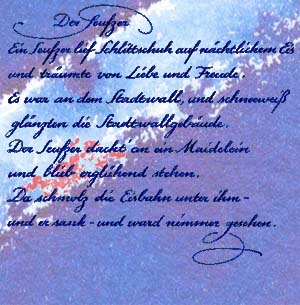 Der Seufzer
Ein Seufzer lief Schlittschuh auf nächtlichem Eis
und träumte von Liebe und Freude.
Es war an dem Stadtwall, und schneeweiß
glänzten die Stadtwallgebäude.
Der Seufzer dacht' an ein Maidelein
und blieb erglühend stehen.
Da schmolz die Eisbahn unter ihm -
und er sank - und ward nimmer gesehen.